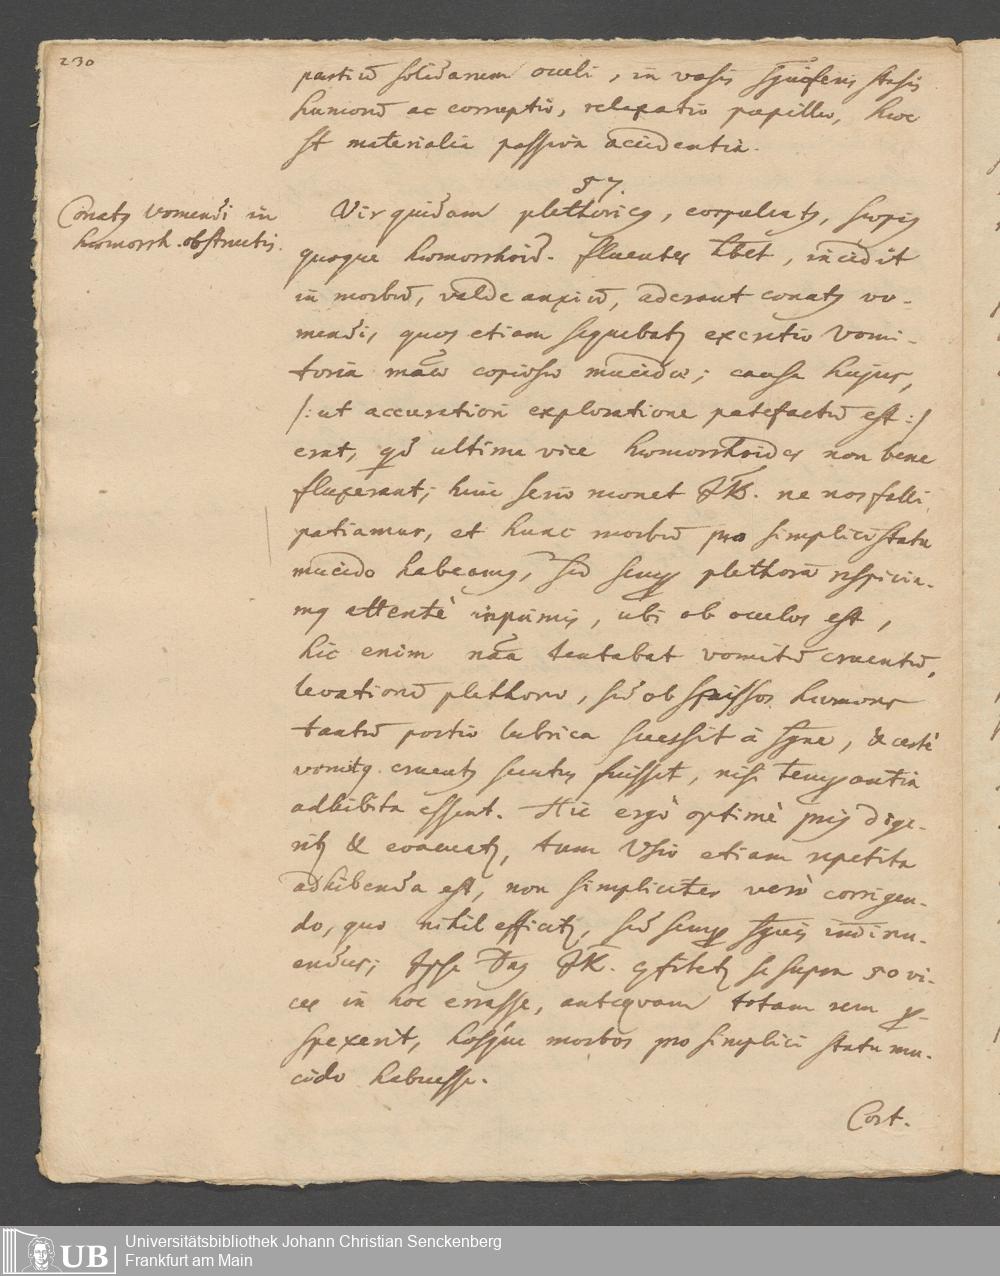 230
partiū solidarum oculi, in vasis sguiferis stasis
humorū ac corruptio, relaxatio papillæ, hoc
st materialia passiva accidentia.
57.
Conatꝰ vomendi in
hæmorrh. obstructis.
Vir quidam plethoricꝰ, corpulentꝰ, sæpiꝰ
quoque hæmorrhoid. fluentes hbet, incidit
in morbū, valde anxiū, aderant conatꝰ vo-
mendi, quos etiam sequebatꝰ excretio vomi-
toria maæ copiosæ mucidæ; causa hujus,
/: ut accuratiori exploratione patefactū est :/
erat, qd ultima vice hæmorrhoides non bene
fluxerant; huic serio monet JK. ne nos falli
patiamur, et hunc morbū pro simplici statu
mucido habeamꝰ, sed semp plethorā respicia-
mꝰ attentè inprimis, ubi ob oculos est,
hic enim naa tentabat vomitū cruentū,
levationū plethoræ, sed ob spissos humores
tantū portio lubrica secessit à sgne, & certè
vomitꝰ cruentꝰ secutus fuisset, nisi tempantia
adhibita essent. Hic ergò optimè priꝰ dige-
ritꝰ & evacuatꝰ, tum Vsio etiam repetita
adhibenda est, non simpliciter verò corrigen-
do, quo nihil efficitꝰ, sed semp sguis imminu-
endus; Ipse Dnꝰ JK. ꝯfitetꝰ se supra 50 vi-
ces in hoc errasse, antequam totam rem p-
spexerit, hosque morbos pro simplici statu mu-
cido habuisse.
Cort.
Universitätsbibliothek Johann Christian Senckenberg
UB
Frankfurt am Main